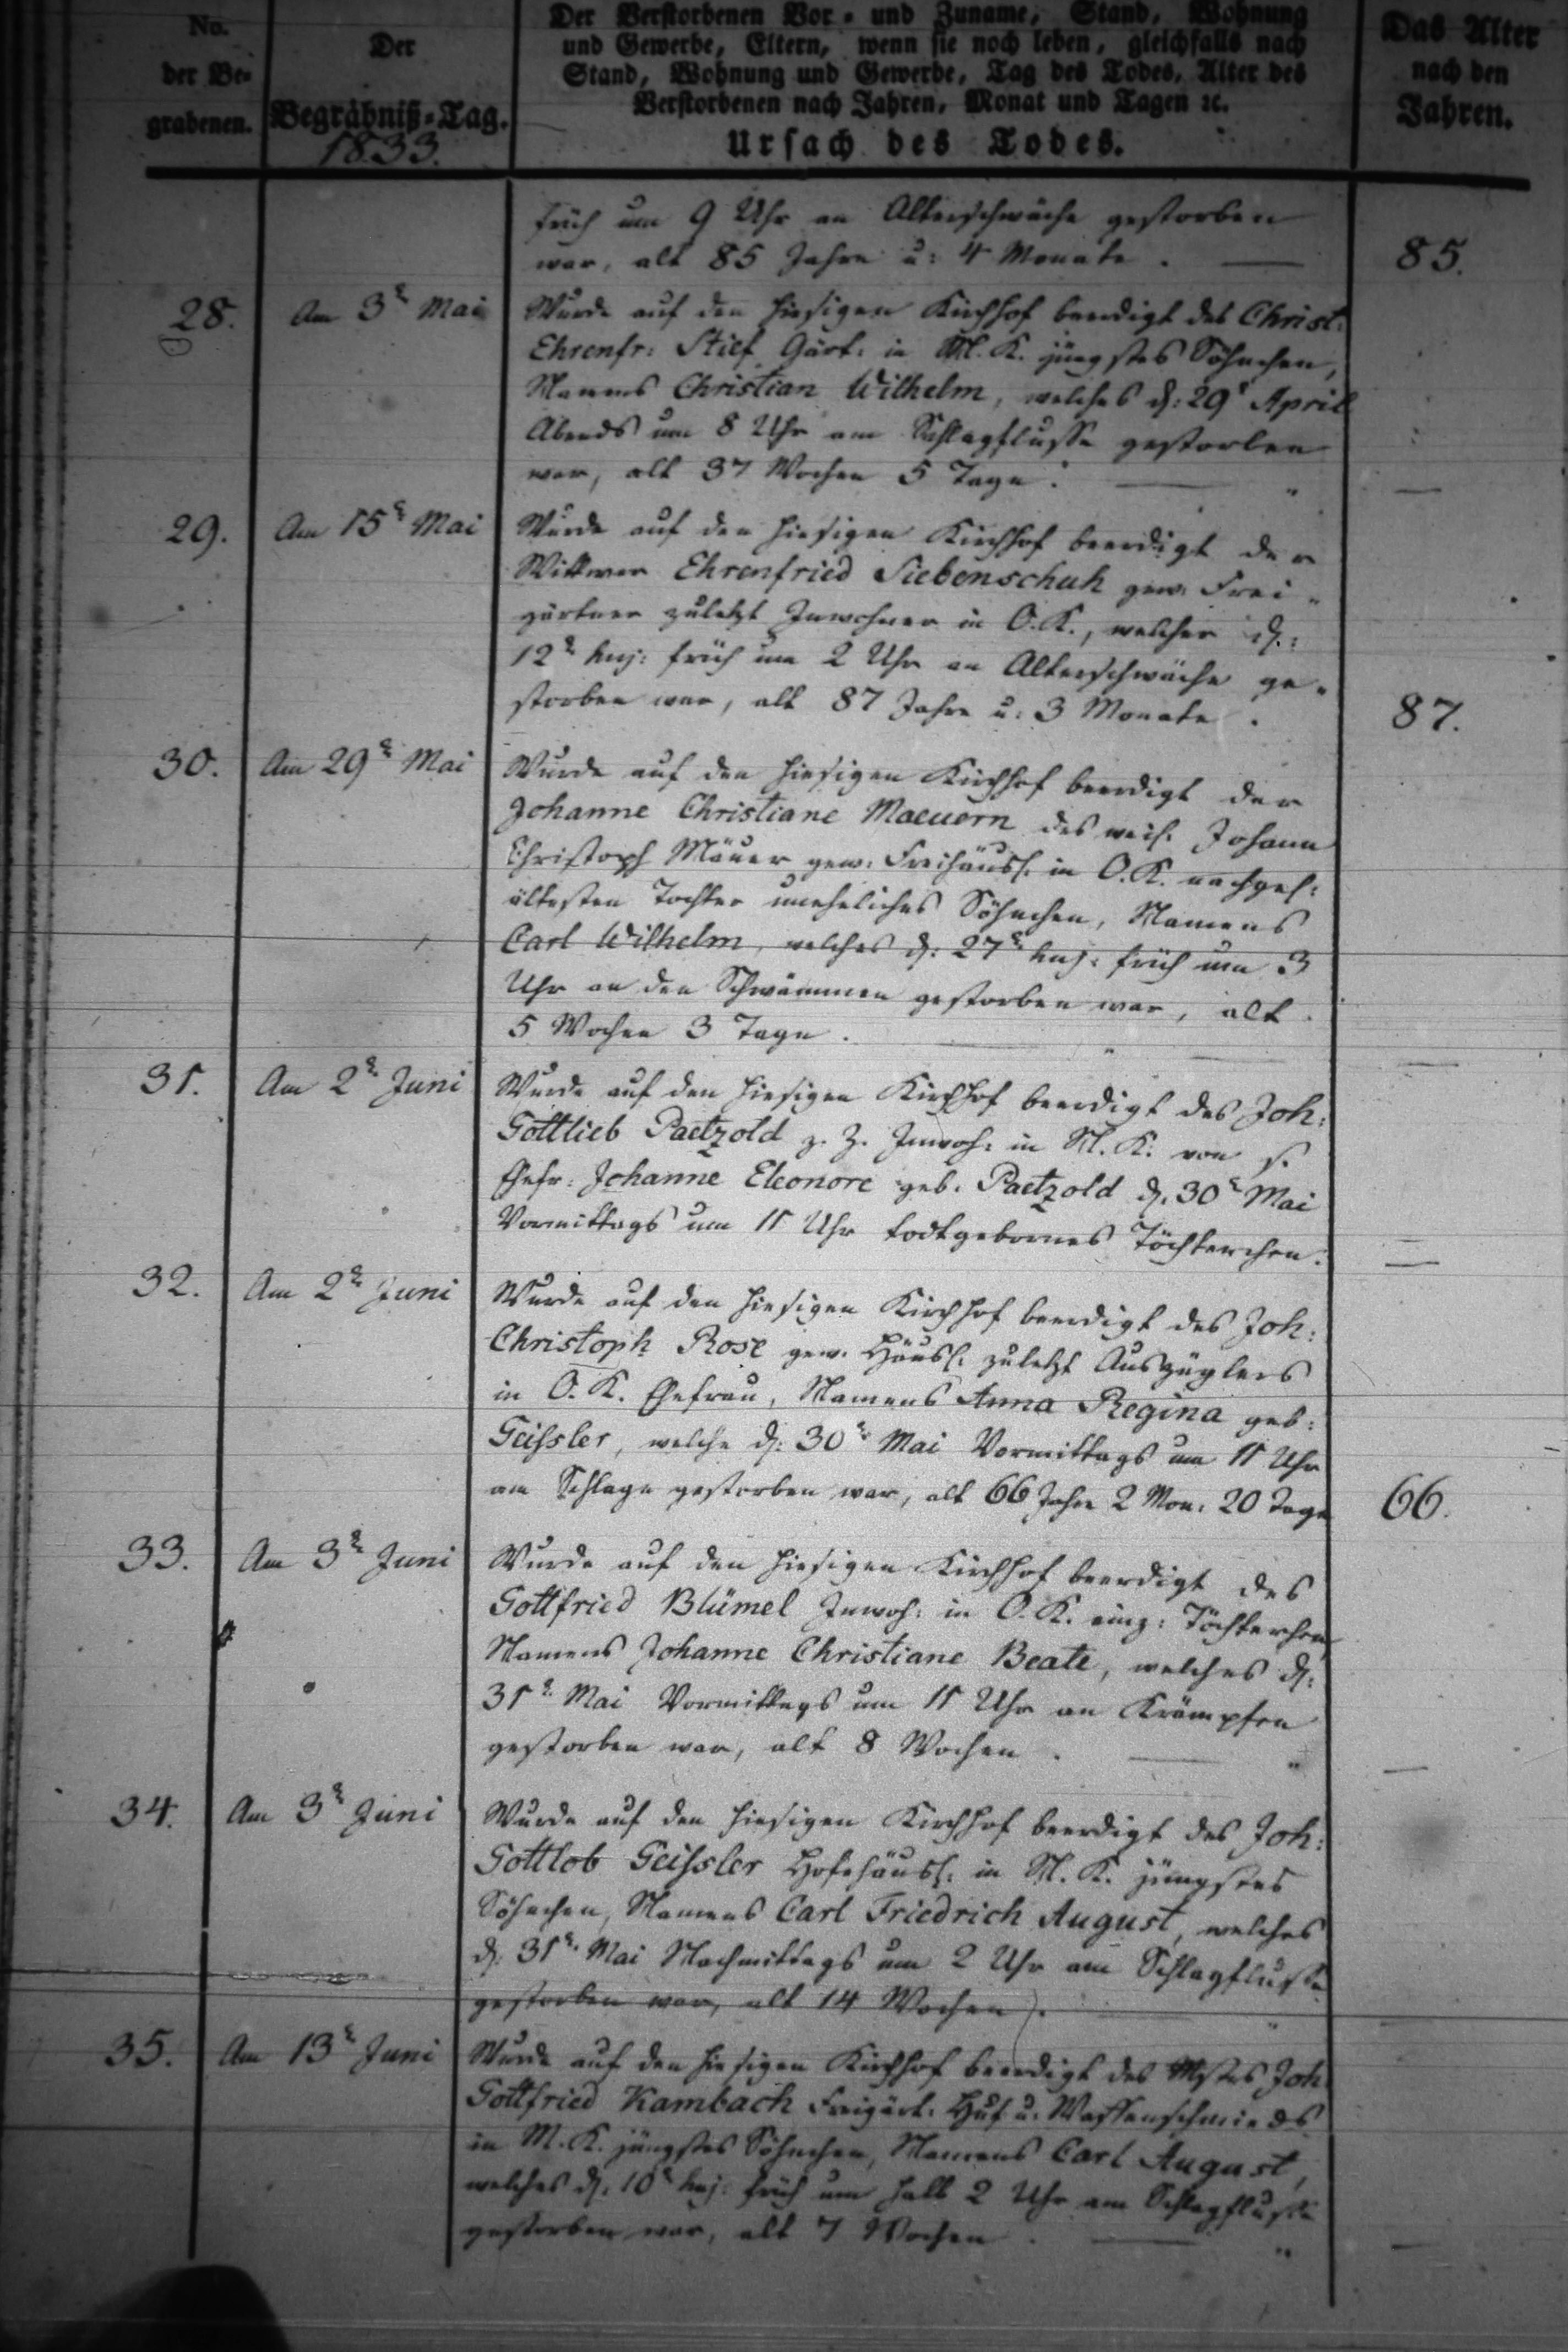 No.
der Be-
grabenen.
Der
Begräbniß-Tag.
1833.
Der Verstorbenen Vor- und Zuname, Stand, Wohnung
und Gewerbe, Eltern, wenn sie noch leben, gleichfalls nach
Stand, Wohnung und Gewerbe, Tag des Todes, Alter des
Verstorbenen nach Jahren, Monat und Tagen ꝛc.
Ursach des Todes.
Das Alter
nach den
Jahren.
früh um 9 Uhr an Altersschwäche gestorben
war, alt 85 Jahre u: 4 Monate. 85.
28. Am 3t Mai Wurde auf den hiesigen Kirchhof beerdigt des Christ:
Ehrenfr: Stief Gärt: in M. K. jüngstes Söhnchen,
Namens Christian Wilhelm, welches d: 29t April
Abends um 8 Uhr am Schlagflusse gestorben
war, alt 37 Wochen 5 Tage. —
29. Am 15t Mai Wurde auf den hiesigen Kirchhof beerdigt der
Wittwer Ehrenfried Siebenschuh gew. Frei-
gärtner zuletzt Inwohner in O. K., welcher d:
12t huj: früh um 2 Uhr an Altersschwäche ge-
storben war, alt 87 Jahre u: 3 Monate. 87.
30. Am 29t Mai Wurde auf den hiesigen Kirchhof beerdigt der
Johanne Christiane Maeuern des weil. Johann
Christoph Mäuer gew. Freihäusl: in O. K. nachgel:
ältesten Tochter uneheliches Söhnchen, Namens
Carl Wilhelm, welches d: 27t huj: früh um 3
Uhr an den Schwämmen gestorben war, alt
5 Wochen 3 Tage. —
31. Am 2t Juni Wurde auf den hiesigen Kirchhof beerdigt des Joh:
Gottlieb Paetzold z. Z. Inwoh: in M. K. von s.
Ehefr: Johanne Eleonore geb. Paetzold d. 30t Mai
Vormittags um 11 Uhr todtgebornes Töchterchen. —
32. Am 2t Juni Wurde auf den hiesigen Kirchhof beerdigt des Joh:
Christoph Rose gew. Häusl: zuletzt Auszüglers
in O. K. Ehefrau, Namens Anna Regina geb:
Geissler, welche d: 30t Mai Vormittags um 11 Uhr
am Schlage gestorben war, alt 66 Jahre 2 Mon: 20 Tage 66.
33. Am 3t Juni Wurde auf den hiesigen Kirchhof beerdigt des
Gottfried Blümel Inwoh: in O. K. einz: Töchterchen,
Namens Johanne Christiane Beate, welches d:
31t Mai Vormittags um 11 Uhr an Krämpfen
gestorben war, alt 8 Wochen. —
34. Am 3t Juni Wurde auf den hiesigen Kirchhof beerdigt des Joh:
Gottlob Geissler Hofehäusl: in M. K. jüngstes
Söhnchen, Namens Carl Friedrich August, welches
d: 31t Mai Nachmittags um 2 Uhr am Schlagflusse
gestorben war, alt 14 Wochen.
35. Am 13t Juni Wurde auf den hiesigen Kirchhof beerdigt des Mstrs Joh:
Gottfried Kambach Freigärt: Huf u. Waffenschmieds
in M. K. jüngstes Söhnchen, Namens Carl August,
welches d. 10t huj: früh um halb 2 Uhr am Schlagflusse
gestorben war, alt 7 Wochen. —